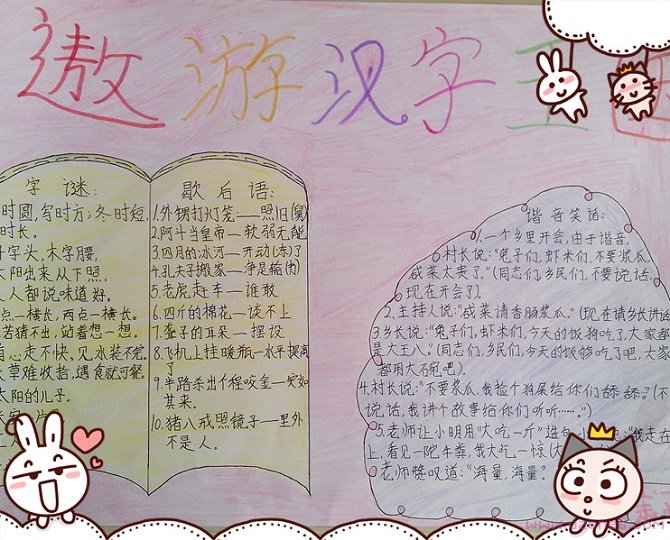 遨游汉字王国
字谜:
时圆,写时方;冬时短,
时长。
字头,木字腰,
阳出来从下照,
人都说味道好。
点一横长,两点一横长。
若猜不出,站着想一想。
心走不快,见水装不完,
草难收拾,遇食就可餐。
太阳的儿子。
歇后语:
1.外甥打灯笼——照旧(舅)
2.阿斗当皇帝——软弱无能
3.四月的冰河——开动(冻)了
4.孔夫子搬家——净是输(书)
5.老虎赶车——谁敢
6.四斤的棉花——谈不上
7.聋子的耳朵——摆设
8.飞机上挂暖瓶—水平提高
了
9.半路杀出个程咬金—突如
其来。
10.猪八戒照镜子—里外
不是人。
谐音笑话:
1.一个乡里开会,由于谐音,
村长说:“兔子们,虾米们,不要浆瓜,
咸菜太贵了。”(同志们,乡民们,不要说话,
现在开会了)
2.主持人说:“咸菜请香肠浆瓜。”(现在请乡长讲话
3.乡长说:“兔子们,虾米们,今天的饭狗吃了,大家都
是大王八。”(同志们,乡民们,今天的饭够吃了吧,大家
都用大碗吧)。
4.村长说:“不要浆瓜,我捡个狗屎给你们舔舔。”(不
说话,我讲个故事给你们听听……。”)
5.老师让小明用“大吃一斤”造句,“我走在
上,看见一陀牛粪,我大吃一惊(
老师赞叹道:“海量,海量。”